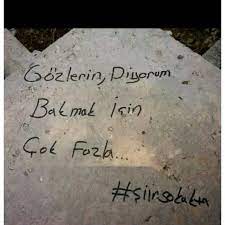 Gözlerin, Diyorum
Bakmak İçin
Çok Fazla...
#şiirsokakta